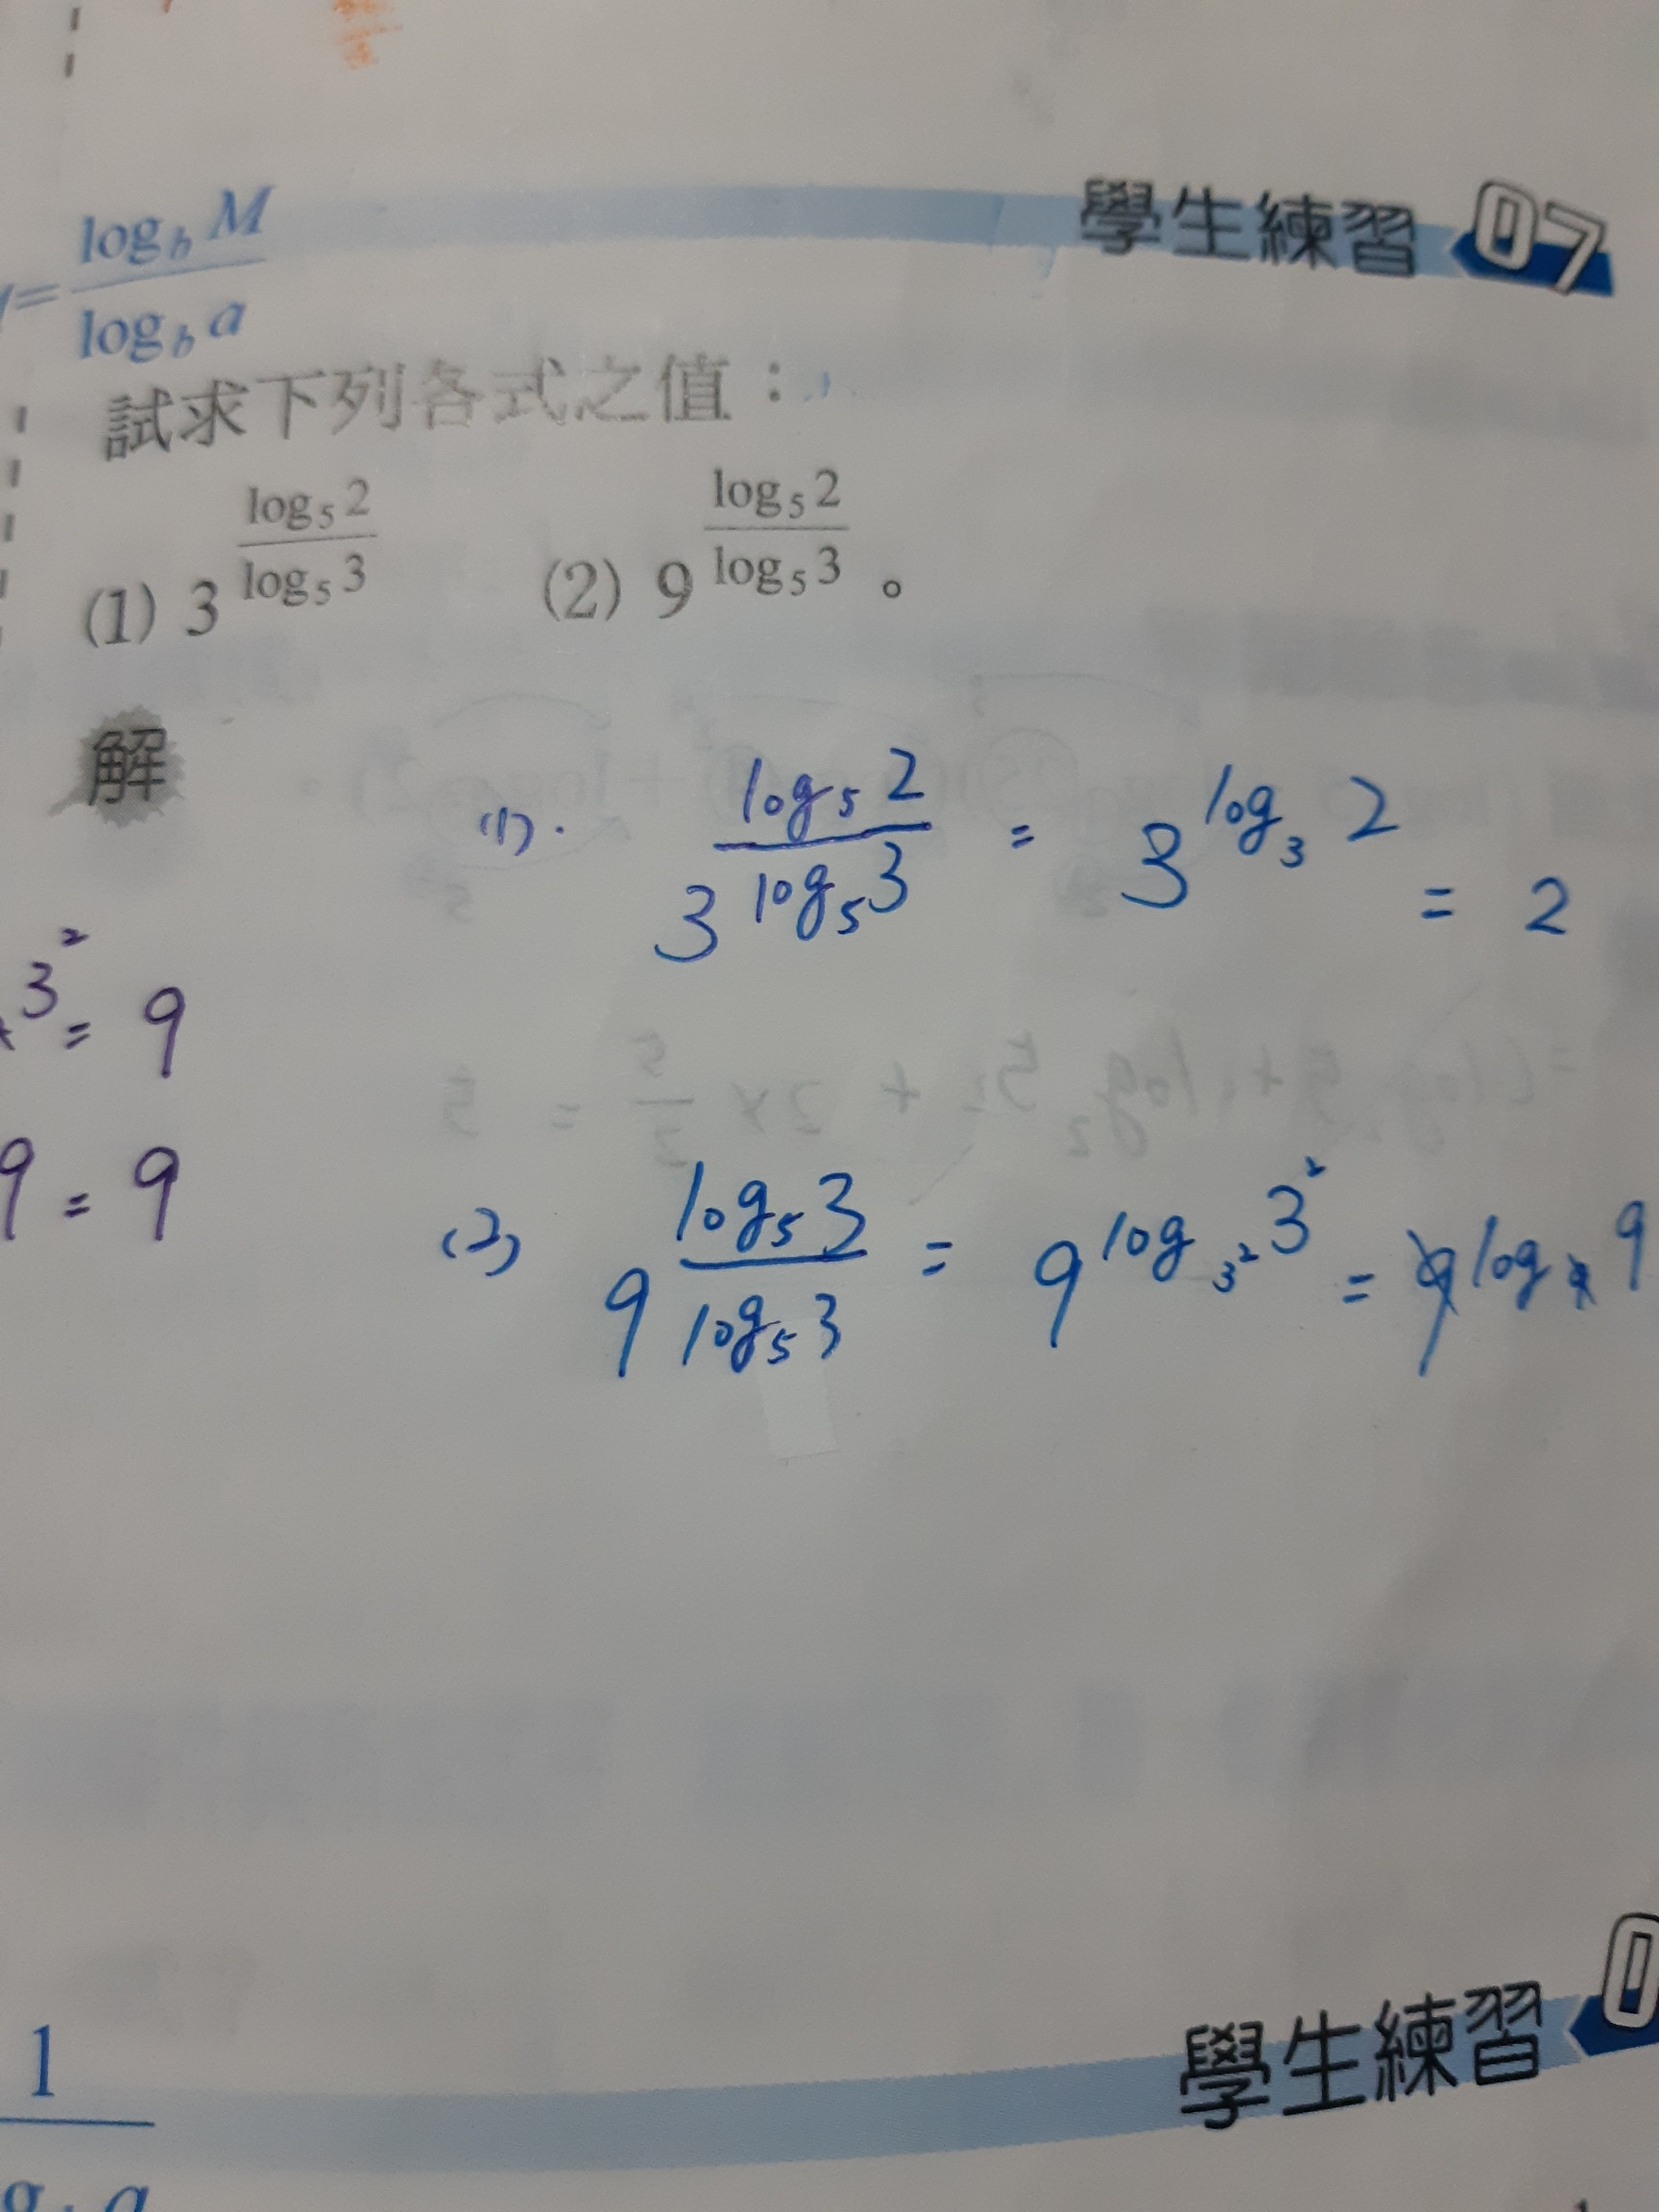 學生練習 07
= log_b M / log_b a
試求下列各式之值：
(1) 3^(log_5 2 / log_5 3) (2) 9^(log_5 2 / log_5 3)。
解
(1). 3^(log_5 2 / log_5 3) = 3^(log_3 2) = 2
3^2 = 9
9 = 9
(2) 9^(log_5 3 / log_5 3) = 9^(log_(3^2) 3^2) = 9^(log_9 9)
學生練習 0
1